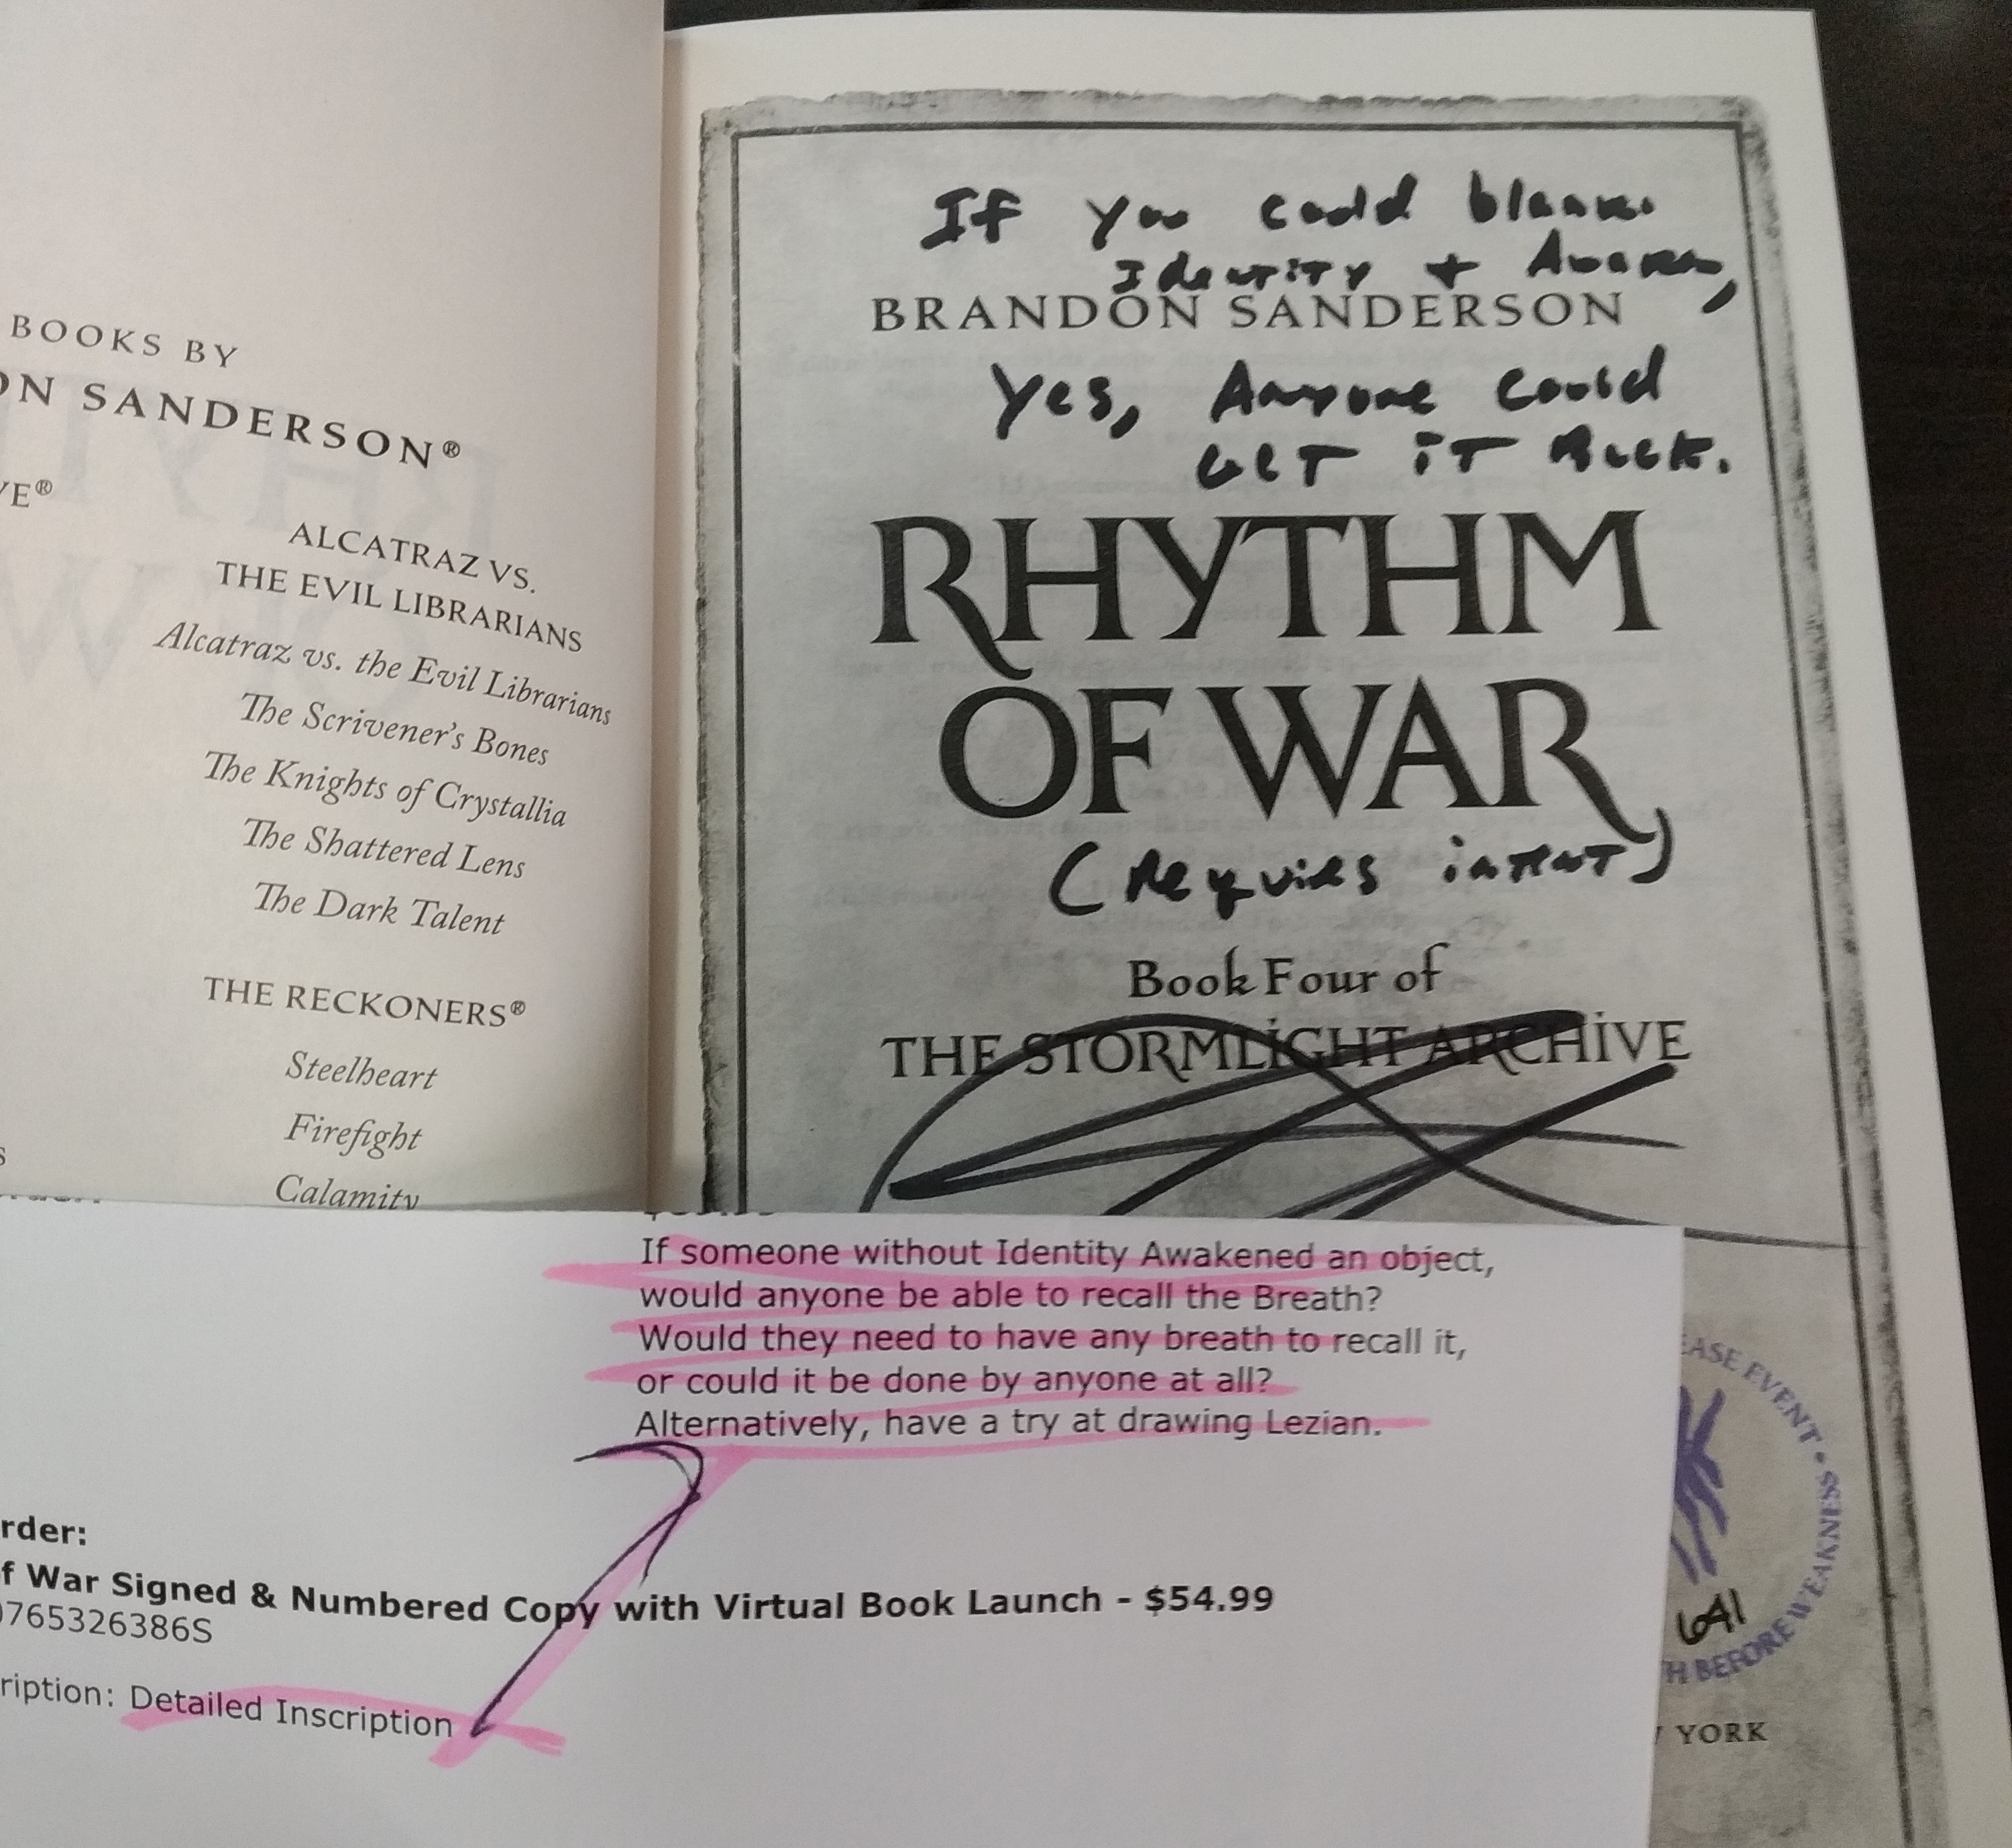 BOOKS BY
ON SANDERSON®
VE®
ALCATRAZ VS.
THE EVIL LIBRARIANS
Alcatraz vs. the Evil Librarians
The Scrivener's Bones
The Knights of Crystallia
The Shattered Lens
The Dark Talent
THE RECKONERS®
Steelheart
Firefight
Calamity
s
If you could blank
Identity + Awaken,
BRANDON SANDERSON
Yes, Anyone could
GET iT Back.
RHYTHM
OF WAR
(Requires intent)
Book Four of
THE STORMLIGHT ARCHIVE
If someone without Identity Awakened an object,
would anyone be able to recall the Breath?
Would they need to have any breath to recall it,
or could it be done by anyone at all?
Alternatively, have a try at drawing Lezian.
rder:
f War Signed & Numbered Copy with Virtual Book Launch - $54.99
0765326386S
ription: Detailed Inscription
EASE EVENT •
H BEFORE WEAKNESS
641
YORK